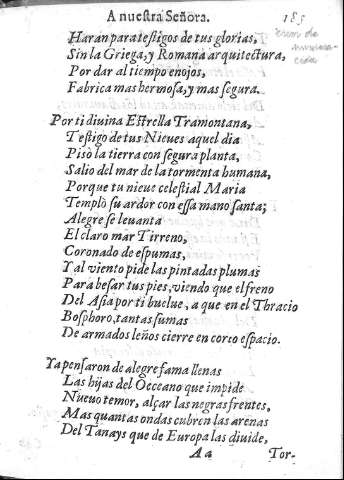 A nuestra Señora. 185
error de numeración
Haràn para testigos de tus glorias,
Sin la Griega, y Romana arquitectura,
Por dar al tiempo enojos,
Fabrica mas hermosa, y mas segura.
Por ti diuina Estrella Tramontana,
Testigo de tus Nieues aquel dia
Pisò la tierra con segura planta,
Salio del mar de la tormenta humana,
Porque tu nieue celestial Maria
Templò su ardor con essa mano santa;
Alegre se leuanta
El claro mar Tirreno,
Coronado de espumas,
Y al viento pide las pintadas plumas
Para besar tus pies, viendo que el freno
Del Asia por ti buelue, a que en el Thracio
Bosphoro, tantas sumas
De armados leños cierre en corto espacio.
Ya pensaron de alegre fama llenas
Las hijas del Occeano que impide
Nueuo temor, alçar las negras frentes,
Mas quantas ondas cubren las arenas
Del Tanays que de Europa las diuide,
Aa Tor-